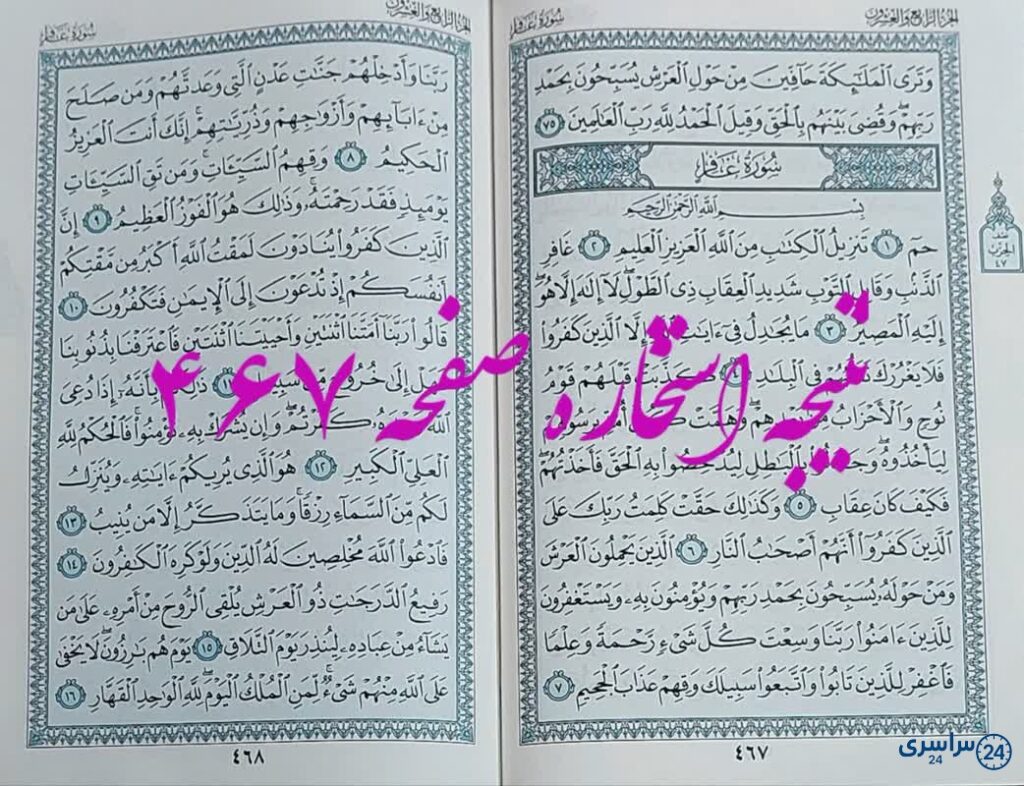 الجزء الرابع والعشرون
سورة غافر
وَتَرَى الْمَلَٰٓئِكَةَ حَآفِّينَ مِنْ حَوْلِ الْعَرْشِ يُسَبِّحُونَ بِحَمْدِ
رَبِّهِمْ ۖ وَقُضِىَ بَيْنَهُم بِالْحَقِّ وَقِيلَ الْحَمْدُ لِلَّهِ رَبِّ الْعَالَمِينَ ٧٥
سورة غافر
بِسْمِ اللَّهِ الرَّحْمَٰنِ الرَّحِيمِ
حمٓ ١ تَنزِيلُ الْكِتَابِ مِنَ اللَّهِ الْعَزِيزِ الْعَلِيمِ ٢ غَافِرِ
الذَّنبِ وَقَابِلِ التَّوْبِ شَدِيدِ الْعِقَابِ ذِى الطَّوْلِ ۖ لَآ إِلَٰهَ إِلَّا هُوَ ۖ
إِلَيْهِ الْمَصِيرُ ٣ مَا يُجَٰدِلُ فِىٓ ءَايَٰتِ إِلَّا الَّذِينَ كَفَرُوا
فَلَا يَغْرُرْكَ فِى الْبِلَٰدِ ٤ كَذَّبَتْ قَبْلَهُمْ قَوْمُ
نُوحٍ وَالْأَحْزَابُ مِنۢ بَعْدِهِمْ ۖ وَهَمَّتْ كُلُّ أُمَّةٍۭ بِرَسُولِهِمْ
لِيَأْخُذُوهُ ۖ وَجَٰدَلُوا بِالْبَٰطِلِ لِيُدْحِضُوا بِهِ الْحَقَّ فَأَخَذْتُهُمْ ۖ
فَكَيْفَ كَانَ عِقَابِ ٥ وَكَذَٰلِكَ حَقَّتْ كَلِمَتُ رَبِّكَ عَلَى
الَّذِينَ كَفَرُوٓا أَنَّهُمْ أَصْحَٰبُ النَّارِ ٦ الَّذِينَ يَحْمِلُونَ الْعَرْشَ
وَمَنْ حَوْلَهُۥ يُسَبِّحُونَ بِحَمْدِ رَبِّهِمْ وَيُؤْمِنُونَ بِهِۦ وَيَسْتَغْفِرُونَ
لِلَّذِينَ ءَامَنُوا رَبَّنَا وَسِعْتَ كُلَّ شَىْءٍ رَّحْمَةً وَعِلْمًا
فَاغْفِرْ لِلَّذِينَ تَابُوا وَاتَّبَعُوا سَبِيلَكَ وَقِهِمْ عَذَابَ الْجَحِيمِ ٧
٤٦٧
الحزب
٤٧
الجزء الرابع والعشرون
سورة غافر
رَبَّنَا وَأَدْخِلْهُمْ جَنَّٰتِ عَدْنٍ الَّتِى وَعَدتَّهُمْ وَمَن صَلَحَ
مِنْ ءَابَآئِهِمْ وَأَزْوَٰجِهِمْ وَذُرِّيَّٰتِهِمْ ۚ إِنَّكَ أَنتَ الْعَزِيزُ
الْحَكِيمُ ٨ وَقِهِمُ السَّيِّـَٔاتِ ۚ وَمَن تَقِ السَّيِّـَٔاتِ
يَوْمَئِذٍ فَقَدْ رَحِمْتَهُۥ ۚ وَذَٰلِكَ هُوَ الْفَوْزُ الْعَظِيمُ ٩ إِنَّ
الَّذِينَ كَفَرُوا يُنَادَوْنَ لَمَقْتُ اللَّهِ أَكْبَرُ مِن مَّقْتِكُمْ
أَنفُسَكُمْ إِذْ تُدْعَوْنَ إِلَى الْإِيمَٰنِ فَتَكْفُرُونَ ١٠
قَالُوا رَبَّنَآ أَمَتَّنَا اثْنَتَيْنِ وَأَحْيَيْتَنَا اثْنَتَيْنِ فَاعْتَرَفْنَا بِذُنُوبِنَا
فَهَلْ إِلَىٰ خُرُوجٍ مِّن سَبِيلٍ ١١ ذَٰلِكُم بِأَنَّهُۥٓ إِذَا دُعِىَ
اللَّهُ وَحْدَهُۥ كَفَرْتُمْ ۖ وَإِن يُشْرَكْ بِهِۦ تُؤْمِنُوا ۚ فَالْحُكْمُ لِلَّهِ
الْعَلِىِّ الْكَبِيرِ ١٢ هُوَ الَّذِى يُرِيكُمْ ءَايَٰتِهِۦ وَيُنَزِّلُ
لَكُم مِّنَ السَّمَآءِ رِزْقًا ۚ وَمَا يَتَذَكَّرُ إِلَّا مَن يُنِيبُ ١٣
فَادْعُوا اللَّهَ مُخْلِصِينَ لَهُ الدِّينَ وَلَوْ كَرِهَ الْكَٰفِرُونَ ١٤
رَفِيعُ الدَّرَجَٰتِ ذُو الْعَرْشِ يُلْقِى الرُّوحَ مِنْ أَمْرِهِۦ عَلَىٰ مَن
يَشَآءُ مِنْ عِبَادِهِۦ لِيُنذِرَ يَوْمَ التَّلَاقِ ١٥ يَوْمَ هُم بَٰرِزُونَ ۖ لَا يَخْفَىٰ
عَلَى اللَّهِ مِنْهُمْ شَىْءٌ ۚ لِّمَنِ الْمُلْكُ الْيَوْمَ ۖ لِلَّهِ الْوَٰحِدِ الْقَهَّارِ ١٦
٤٦٨
نتیجه استخاره صفحه ۴۶۷
سراسری 24
24